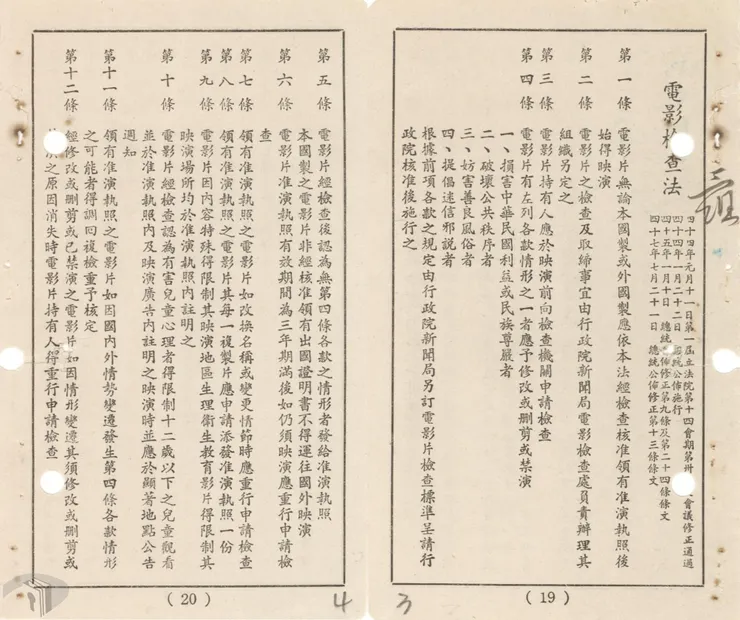 電影檢查法
四十四年元月十一日第一屆立法院第十四會期第卅會議修正通過
四十四年一月二十二日總統公佈施行
四十五年一月十日總統公佈修正第九條及第二十四條條文
四十七年七月二十一日總統公佈修正第十三條條文
第一條 電影片無論本國製或外國製應依本法經檢查核准領有准演執照後
始得映演
第二條 電影片之檢查及取締事宜由行政院新聞局電影檢查處負責辦理其
組織另定之
第三條 電影片持有人應於映演前向檢查機關申請檢查
第四條 電影片有左列各款情形之一者應予修改或刪剪或禁演
一、損害中華民國利益或民族尊嚴者
二、破壞公共秩序者
三、妨害善良風俗者
四、提倡迷信邪說者
根據前項各款之規定由行政院新聞局另訂電影片檢查標準呈請行
政院核准後施行之
(19)
3
第五條 電影片經檢查後認為無第四條各款之情形者發給准演執照
本國製之電影片非經核准領有出國證明書不得運往國外映演
第六條 電影片准演執照有效期間為三年期滿後如仍須映演應重行申請檢
查
第七條 領有准演執照之電影片如改換名稱或變更情節時應重行申請檢查
第八條 領有准演執照之電影片其每一複製片應申請添發准演執照一份
第九條 電影片因內容特殊得限制其映演地區生理衛生教育影片得限制其
映演場所均於准演執照內註明之
第十條 電影片經檢查認為有害兒童心理者得限制十二歲以下之兒童觀看
並於准演執照內及映演廣告內註明之映演時並應於顯著地點公告
通知
第十一條 領有准演執照之電影片如因國內外情勢變遷發生第四條各款情形
之可能者得調回複檢重予核定
第十二條 經修改或刪剪或已禁演之電影片如因情形變遷其須修改或刪剪或
之原因消失時電影片持有人得重行申請檢查
(20)
4